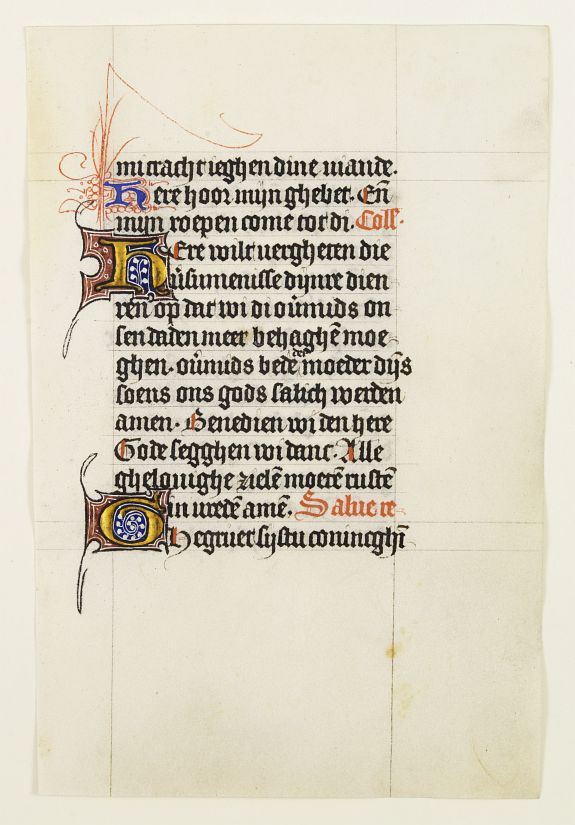 mi cracht ieghen dine viande.
Here hoor mijn ghebet. En̄
mijn roepen come tot di. Coll̄.
HEre wilt vergheuen die
uersumenisse dijnre dien
ren op dat wi di ouermids on
sen daden meer behaghē moe
ghen. ouermids bede der moeder dijs
soens ons gods salich werden
amen. Benedien wi den here
Gode segghen wi danc. Alle
ghelouighe zielē moetē rustē
in vredē amē. Salue re
GHegruet sijstu coninghī